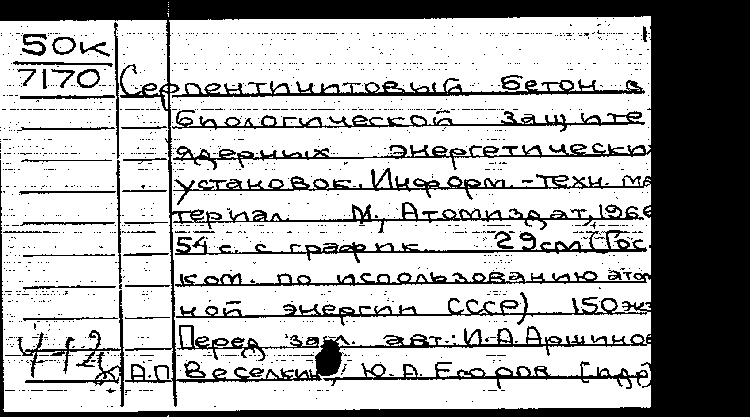 50к
7170
Серпентинитовый бетон в
биологической защите
ядерных энергетически
установок. Информ.-техн. ма
териал. М., Атомиздат, 196
54 с. с график. 29 см (Гос.
ком. по использованию атом
ной энергии СССР) 150 экз
Перед загл. авт.: И.А. Аршинов
А.П. Веселкин, Ю.А. Егоров [и др]